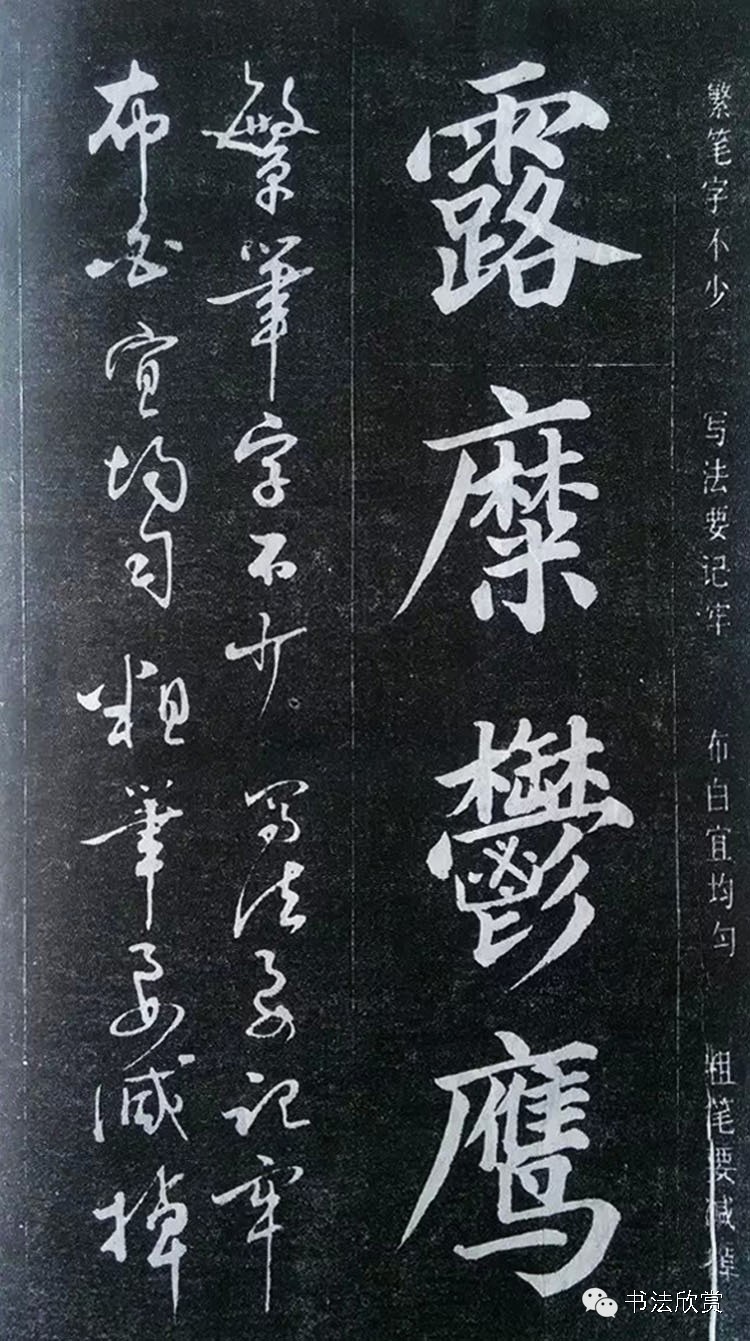 繁笔字不少 写法要记牢 布白宜均匀 粗笔要减掉
露糜鬱鹰
繁筆字不少 写法要记牢
布白宜均匀 粗筆要减掉
书法欣赏